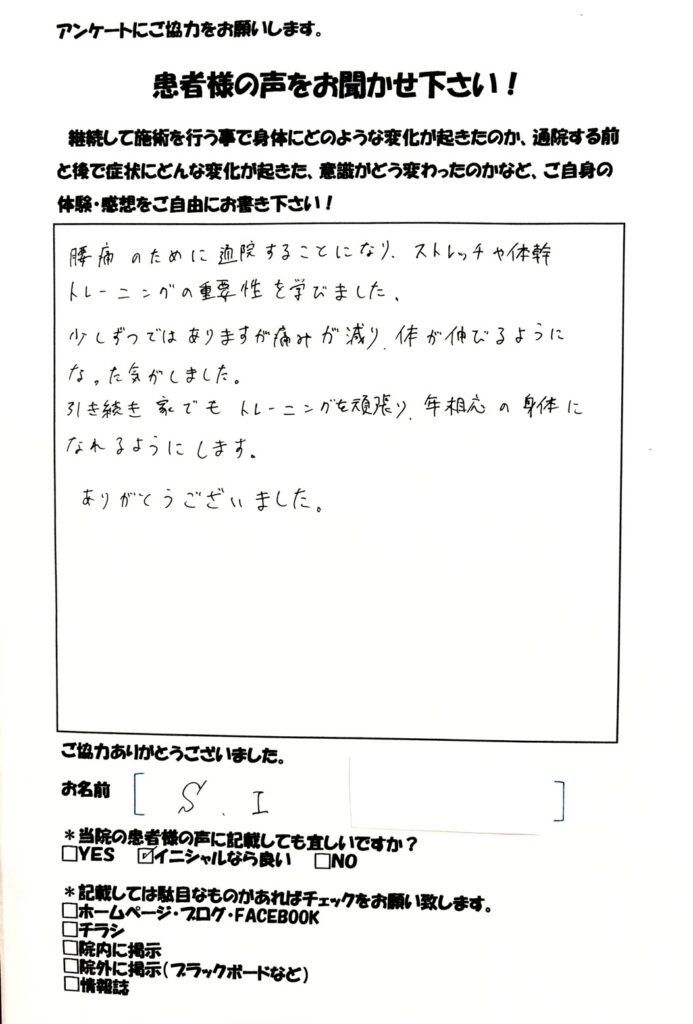 アンケートにご協力をお願いします。
患者様の声をお聞かせ下さい！
継続して施術を行う事で身体にどのような変化が起きたのか、通院する前
と後で症状にどんな変化が起きた、意識がどう変わったのかなど、ご自身の
体験・感想をご自由にお書き下さい！
腰痛のために通院することになり、ストレッチや体幹
トレーニングの重要性を学びました。
少しずつではありますが痛みが減り、体が伸びるように
なった気がしました。
引き続き家でもトレーニングを頑張り、年相応の身体に
なれるようにします。
ありがとうございました。
ご協力ありがとうございました。
お名前 [ S.I ]
＊当院の患者様の声に記載しても宜しいですか？
□YES ☑イニシャルなら良い □NO
＊記載しては駄目なものがあればチェックをお願い致します。
□ホームページ・ブログ・FACEBOOK
□チラシ
□院内に掲示
□院外に掲示（ブラックボードなど）
□情報誌